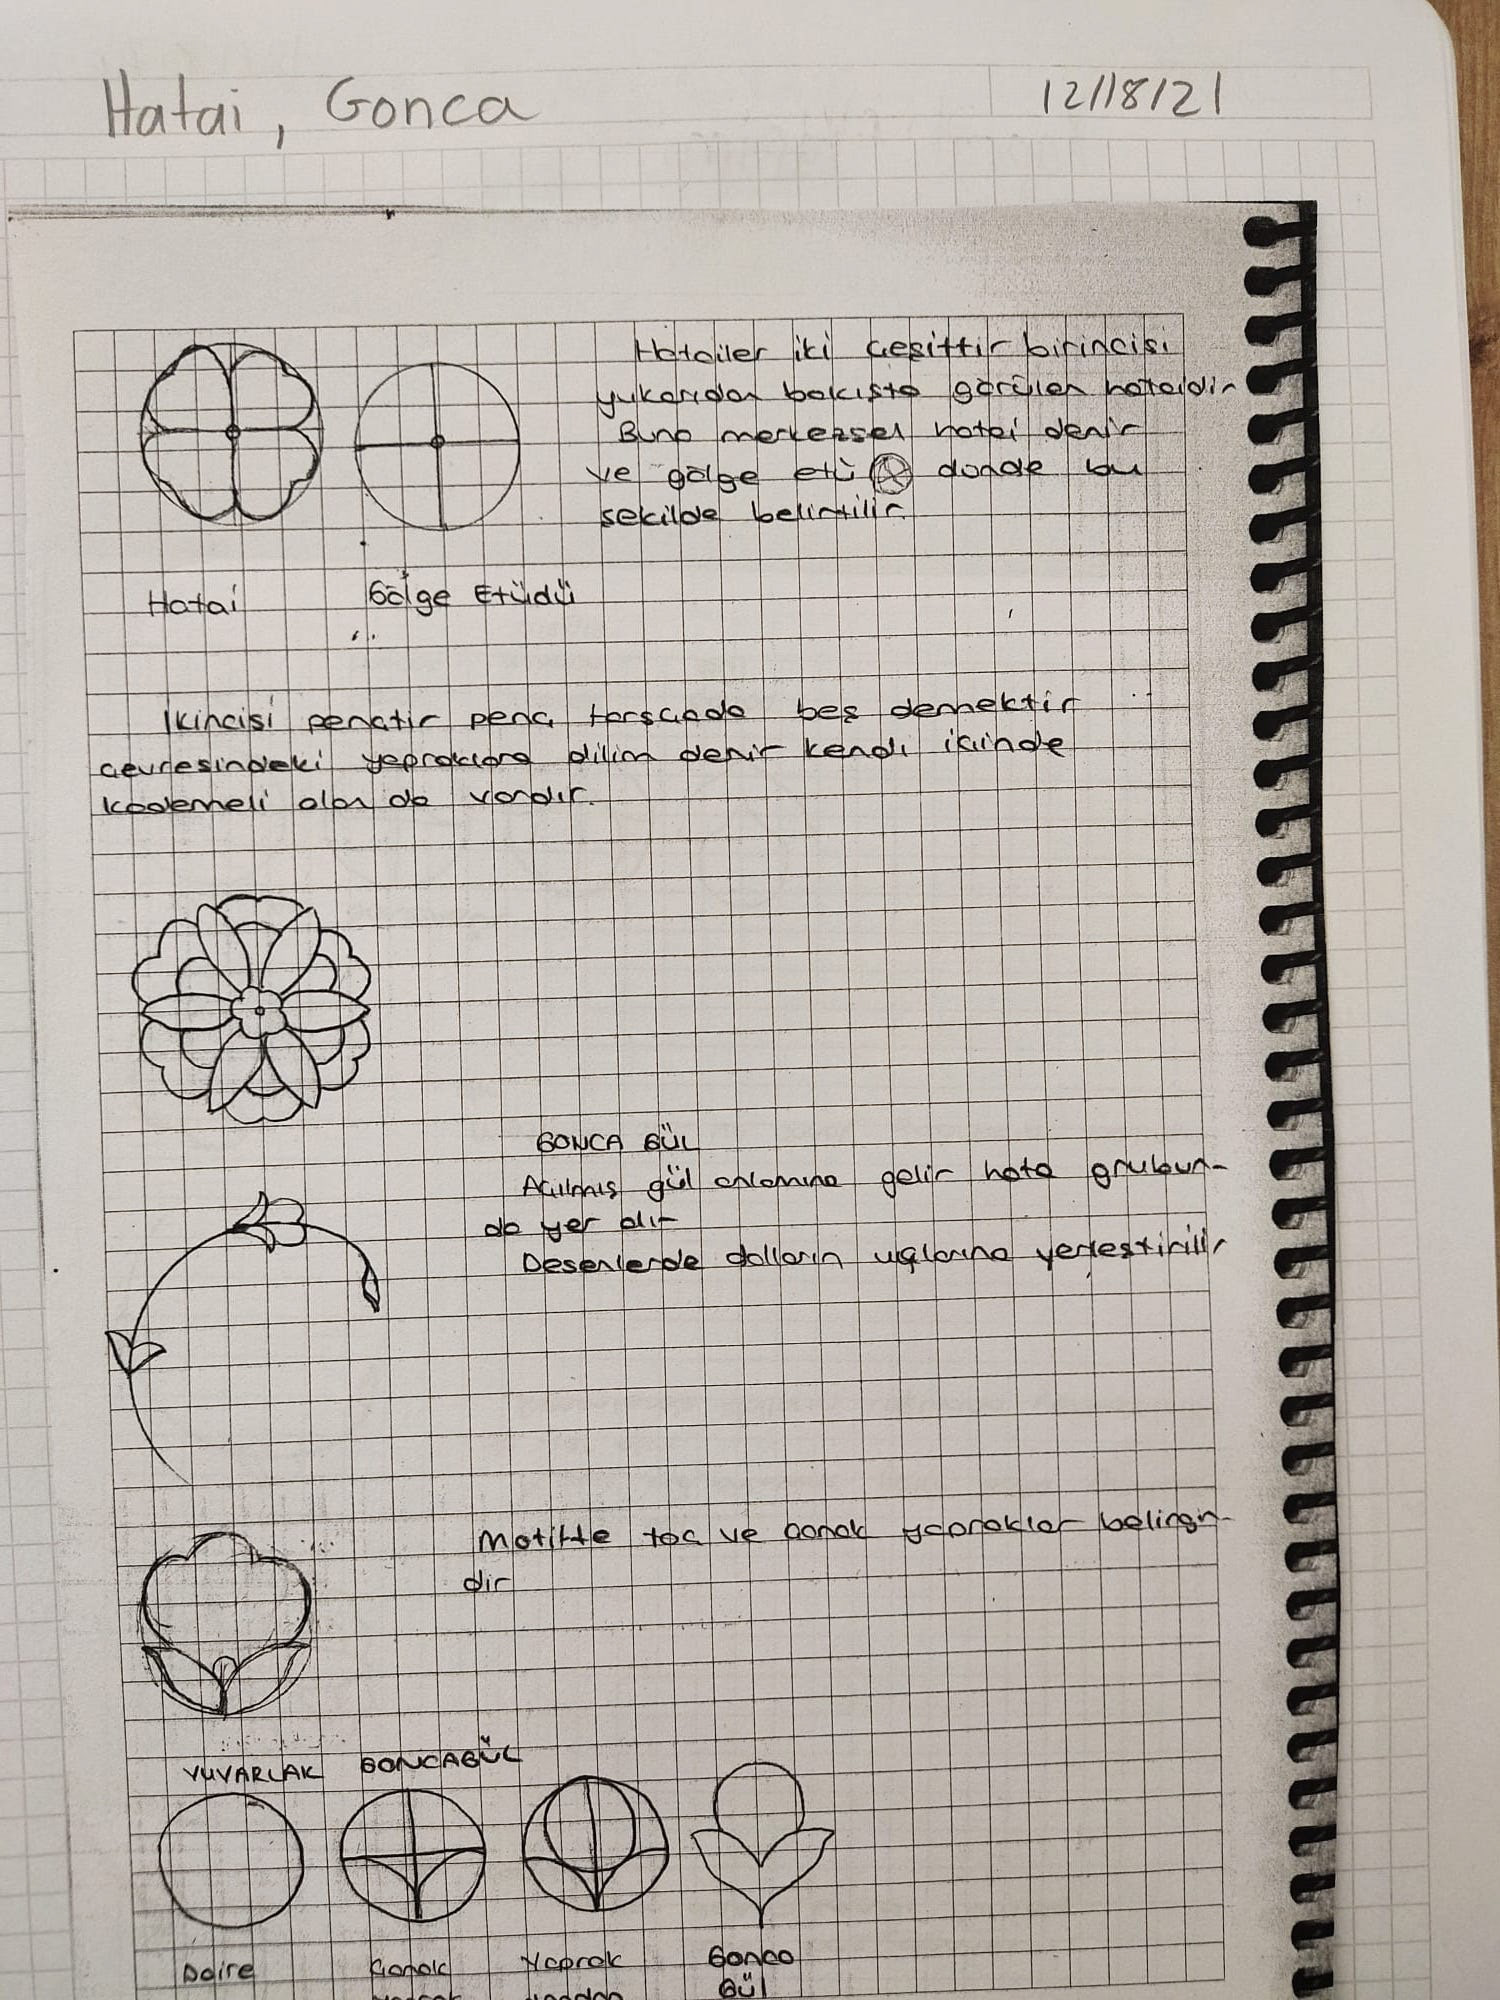 Hatai, Gonca
12/18/21
Hatailer iki çeşittir birincisi
yukarıdan bakışta görülen hataidir
Buna merkezsel hatai denir
ve gölge etü dünde bu
şekilde belirtilir.
Hatai
Gölge Etüdü
İkincisi pençtir penç farsçada beş demektir
çevresindeki yapraklara dilim denir kendi içinde
kademeli olan da vardır.
GONCA GÜL
Açılmış gül anlamına gelir hata grubun-
da yer alır
Desenlerde dalların uçlarına yerleştirilir
Motifte taç ve çanak yapraklar belirgin-
dir
YUVARLAK GONCAGÜL
Daire
Çanak
Yaprak
Gonca
Gül